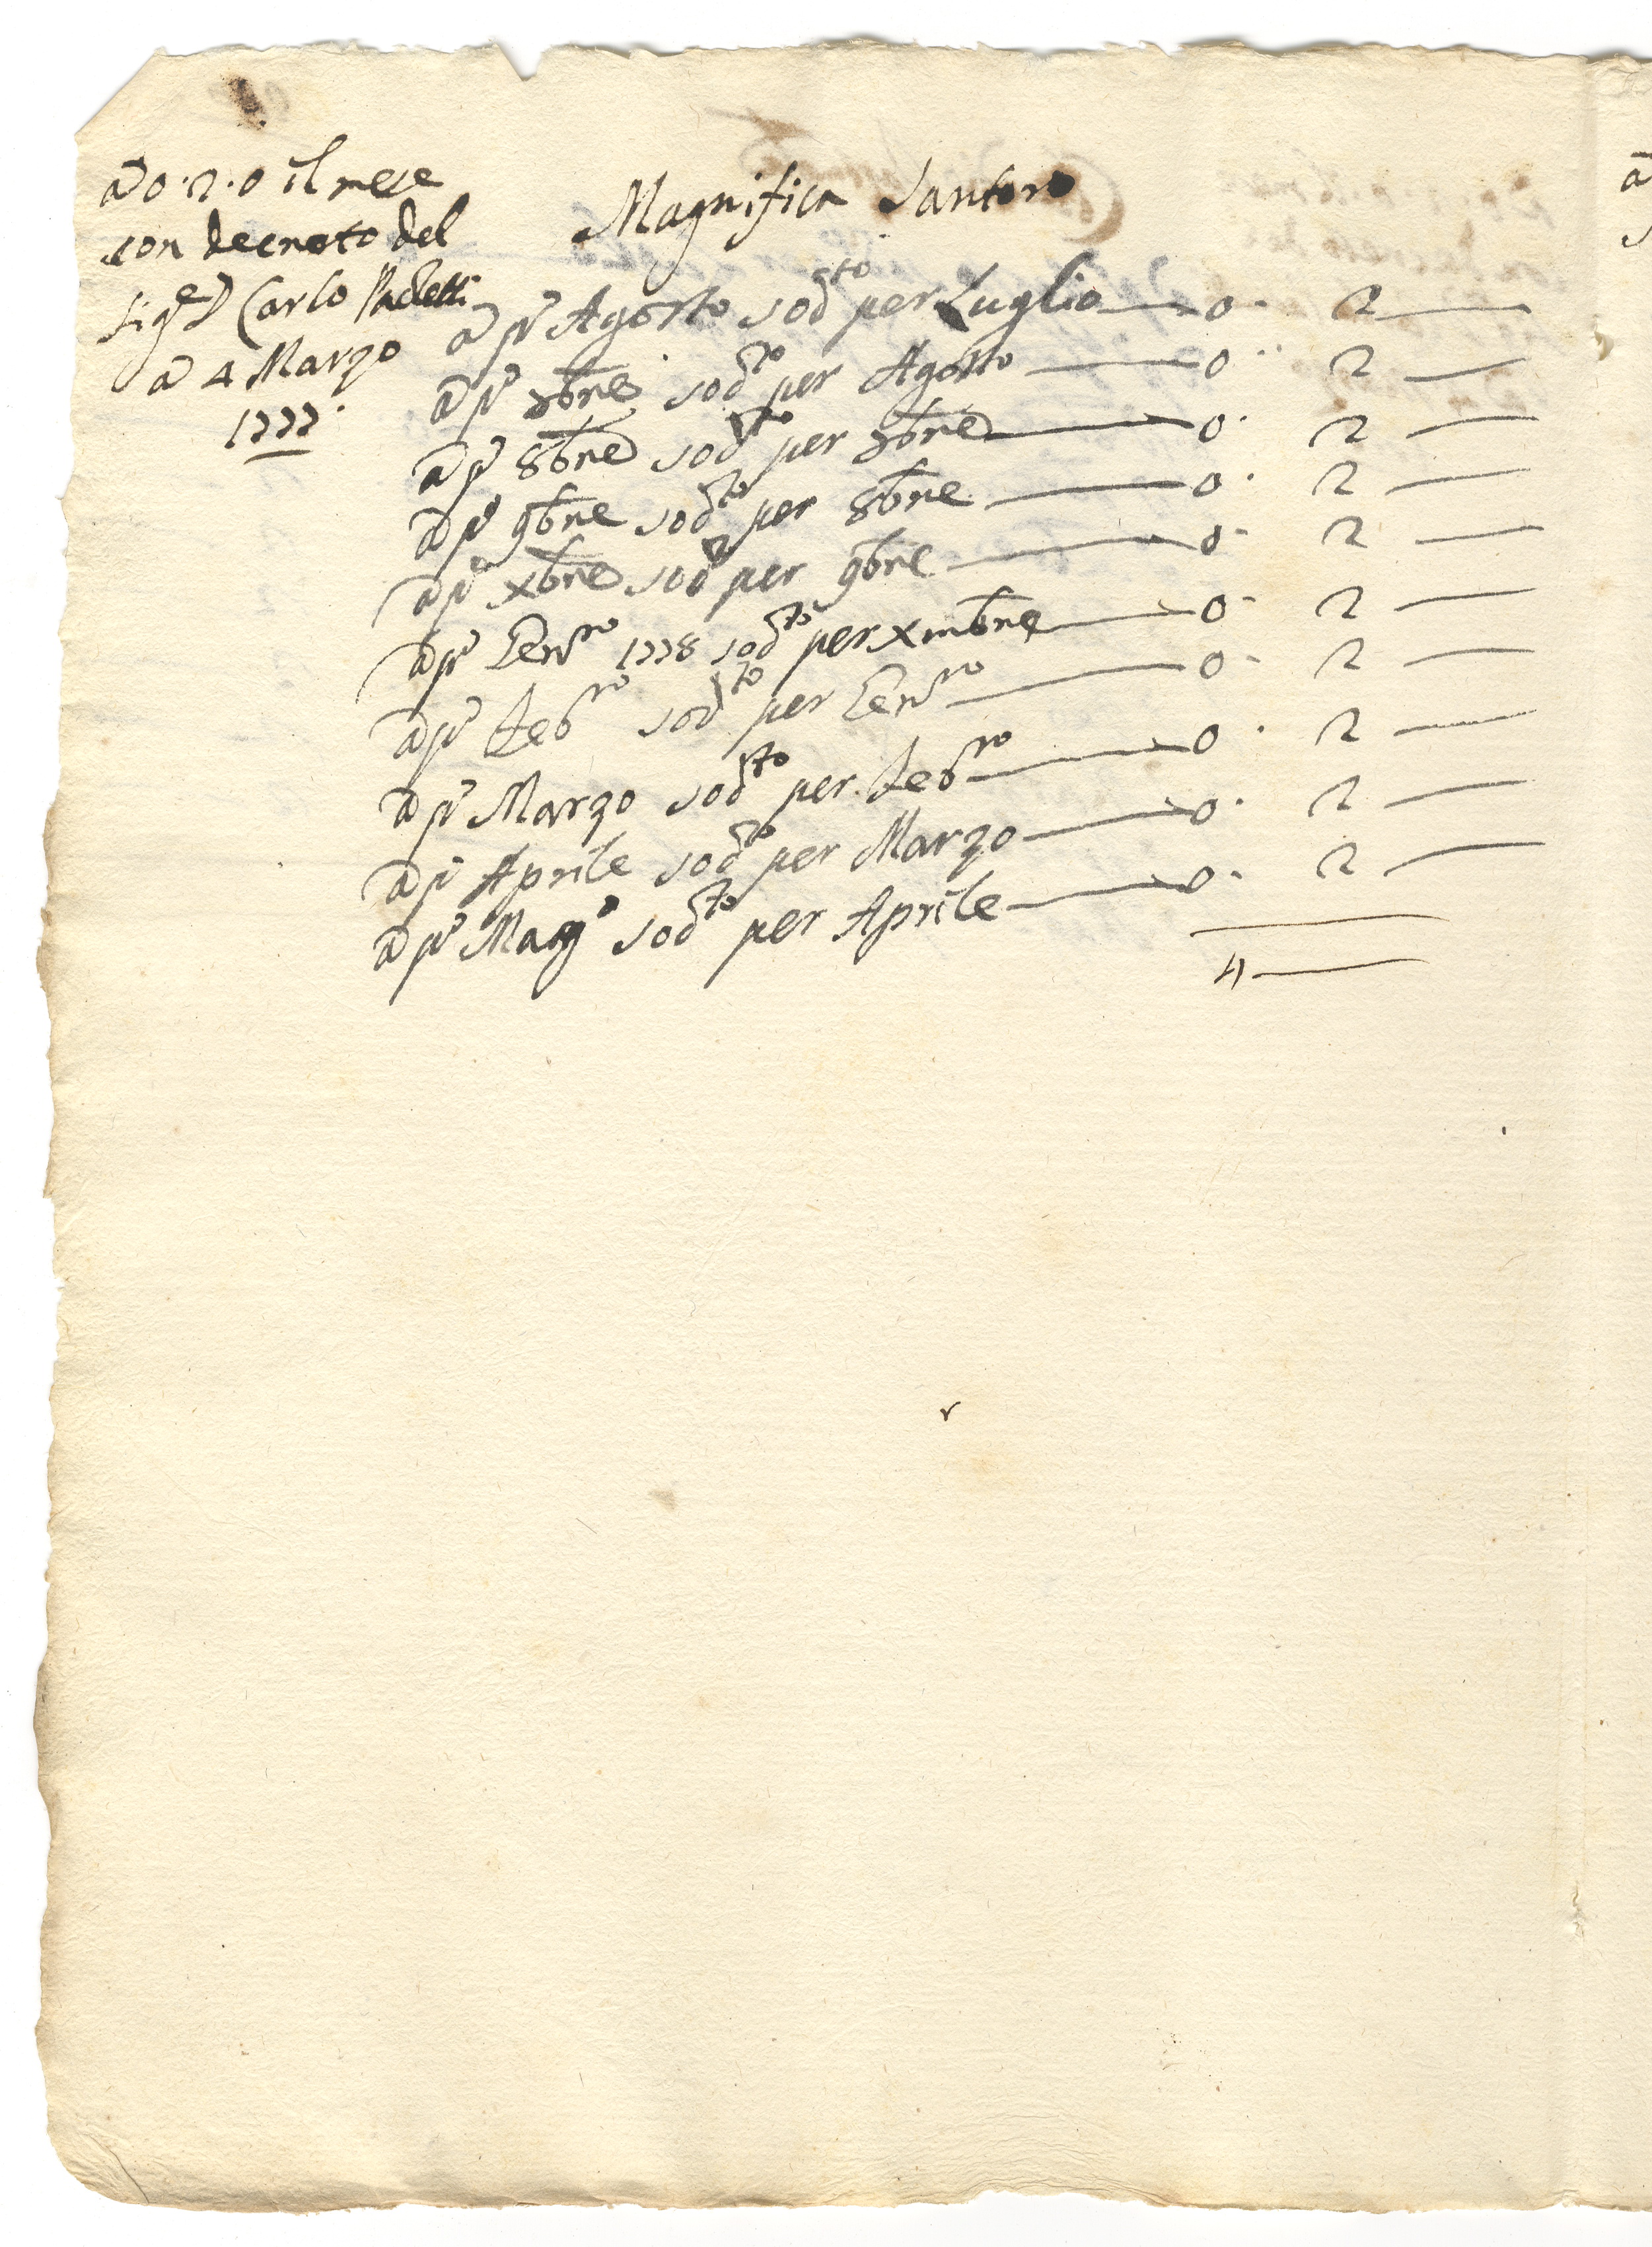 a 0.2.0 il mese
con decreto del
Sig.e D Carlo
a 4 Marzo
1777.
Magnifica Santoro
a p.o Agosto sod.to per Luglio — 0. 2 —
a p.o 7bre sod.to per Agosto — 0.. 2 —
a p.o 8bre sod.to per 7bre — 0. 2 —
a p.o 9bre sod.to per 8bre — 0. 2 —
a p.o xbre sod.to per 9bre — 0. 2 —
a p.o Gen.ro 1778 sod.to per xmbre — 0. 2 —
a p.o Feb.ro sod.to per Gen.ro — 0. 2 —
a p.o Marzo sod.to per Feb.ro — 0. 2 —
a p.o Aprile sod.to per Marzo — 0. 2 —
a p.o Magg.o sod.to per Aprile — 0. 2 —
4 —